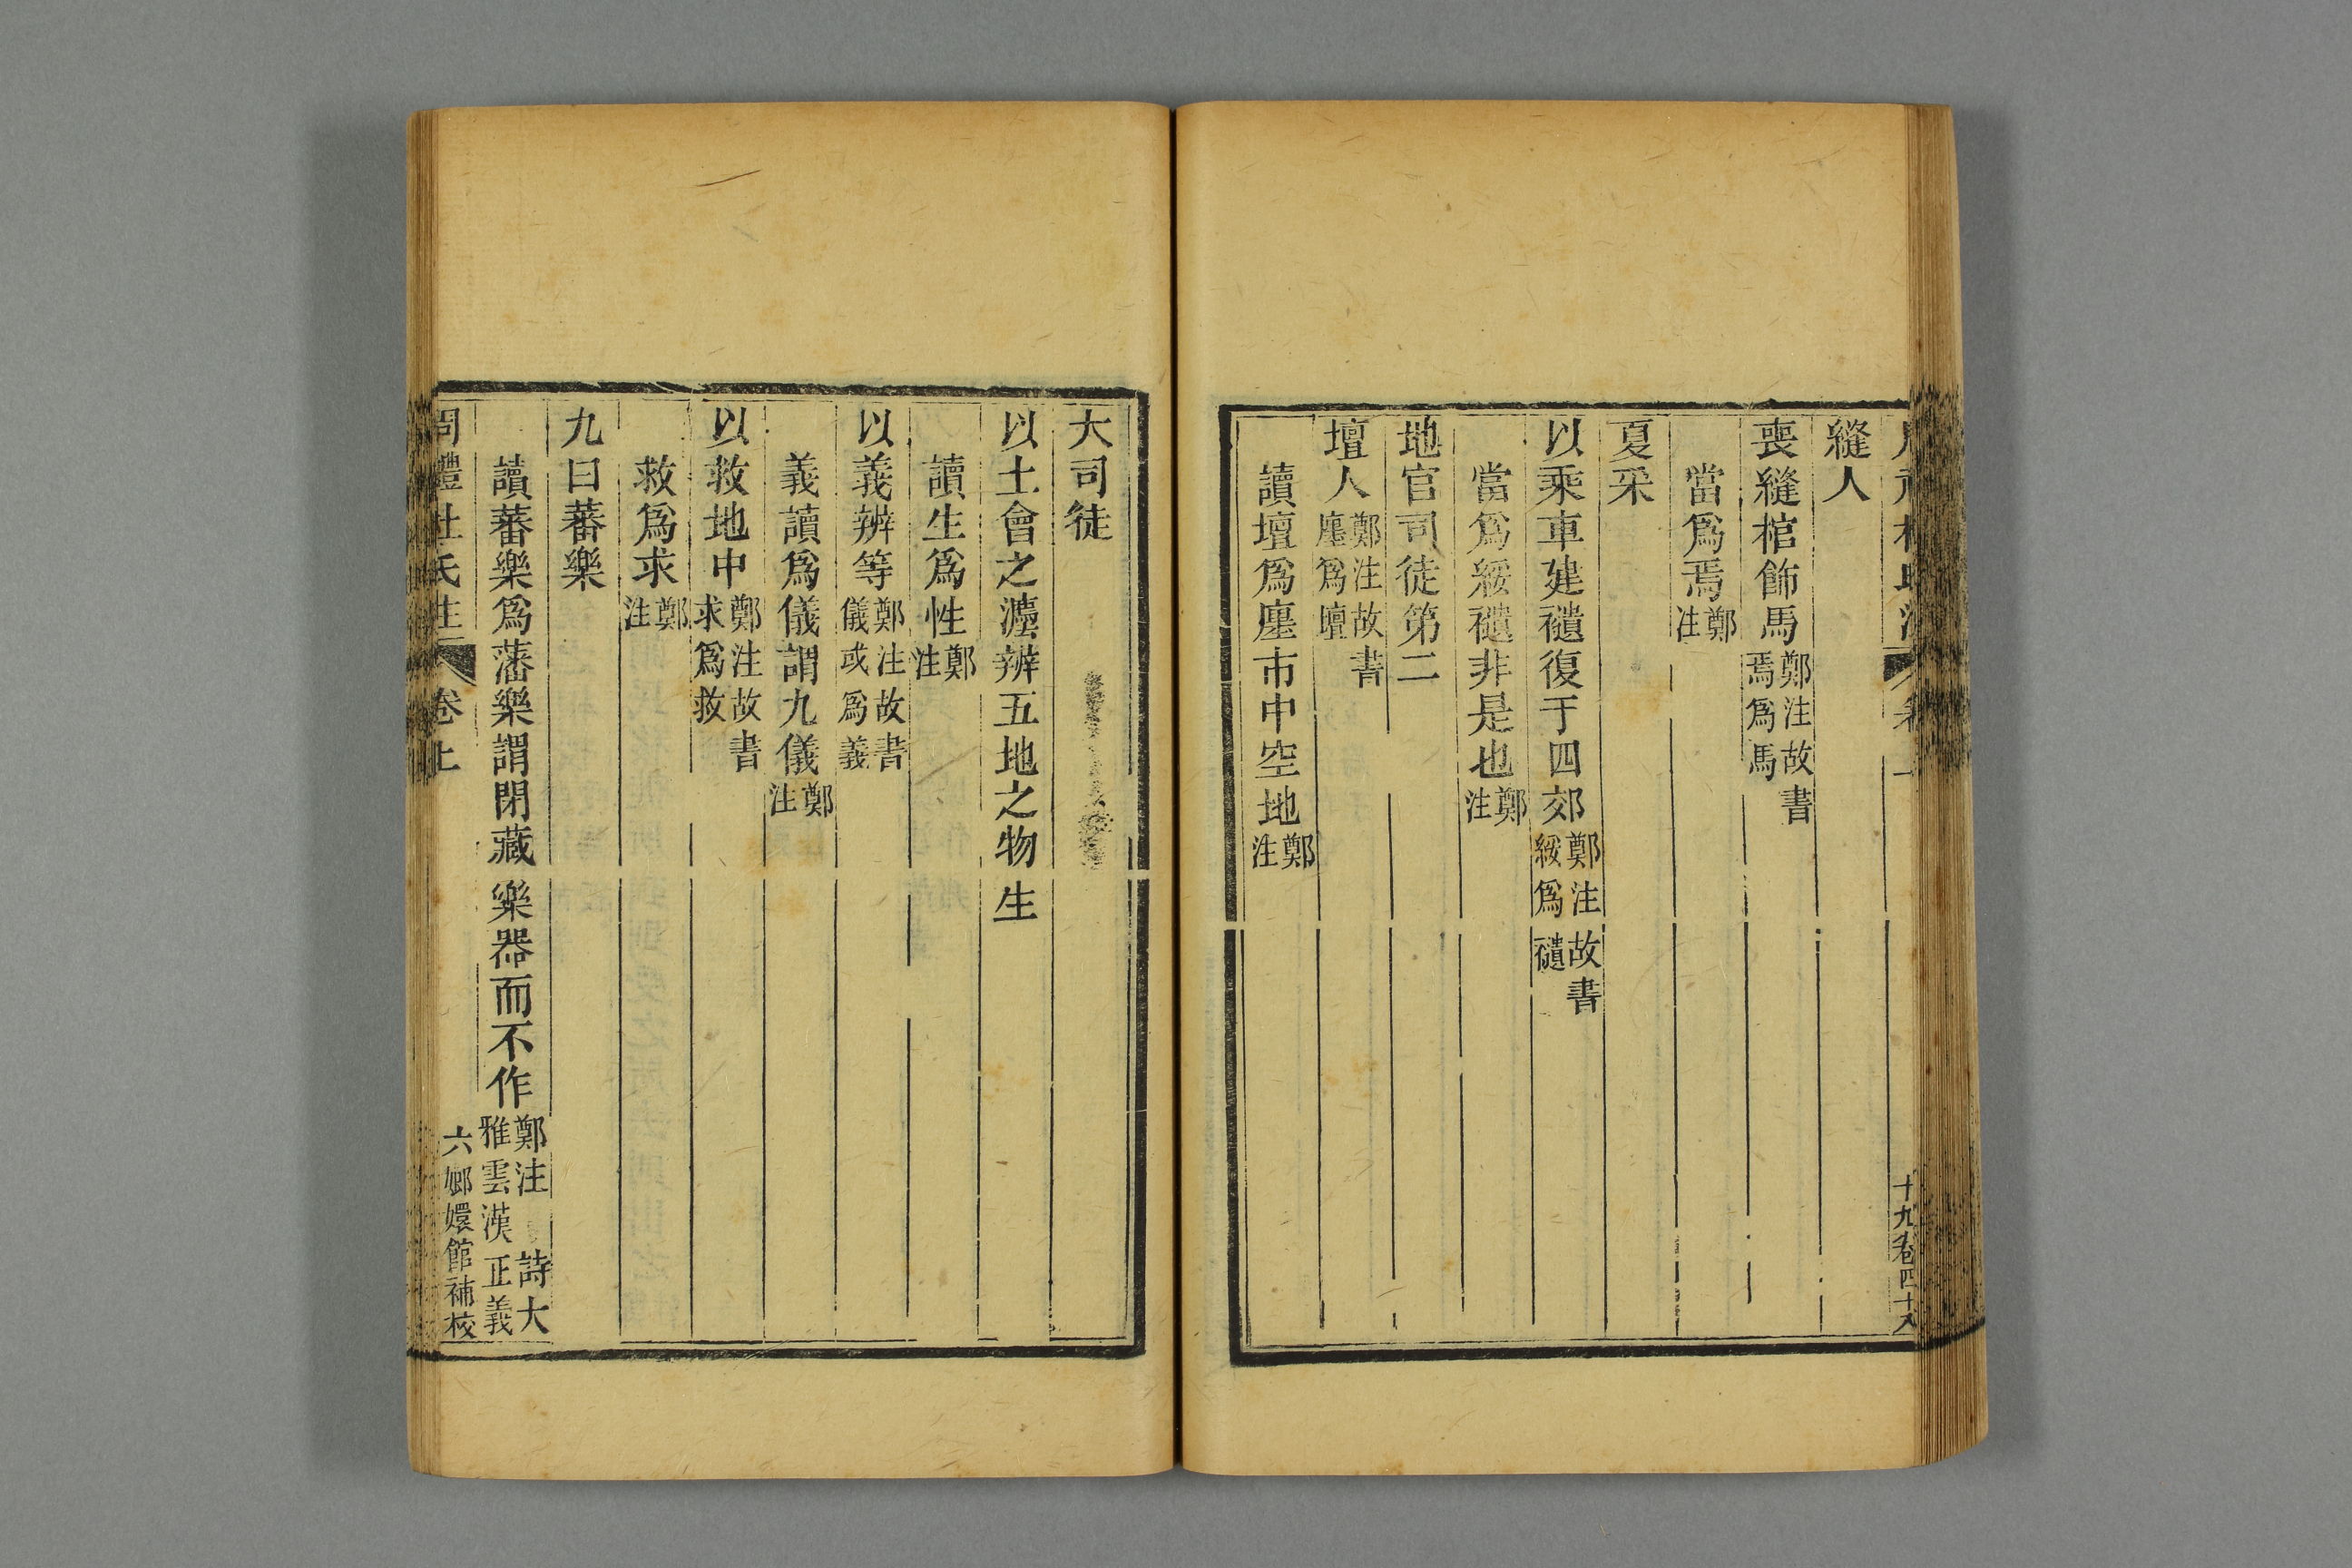 縫人
喪縫棺飾馬鄭注故書焉爲馬
當爲焉鄭注
夏采
以乘車建䙡復于四郊鄭注故書綏爲䙡
當爲綏䙡非是也鄭注
地官司徒第二
壇人鄭注故書廛爲壇
讀壇爲廛市中空地鄭注
大司徒
以土會之灋辨五地之物生
讀生爲性鄭注
以義辨等鄭注故書儀或爲義
義讀爲儀謂九儀鄭注
以救地中鄭注故書求爲救
救爲求鄭注
九曰蕃樂
讀蕃樂爲藩樂謂閉藏樂器而不作鄭注 詩大雅雲漢正義
周禮杜氏注 卷上
六 嫏嬛館補校